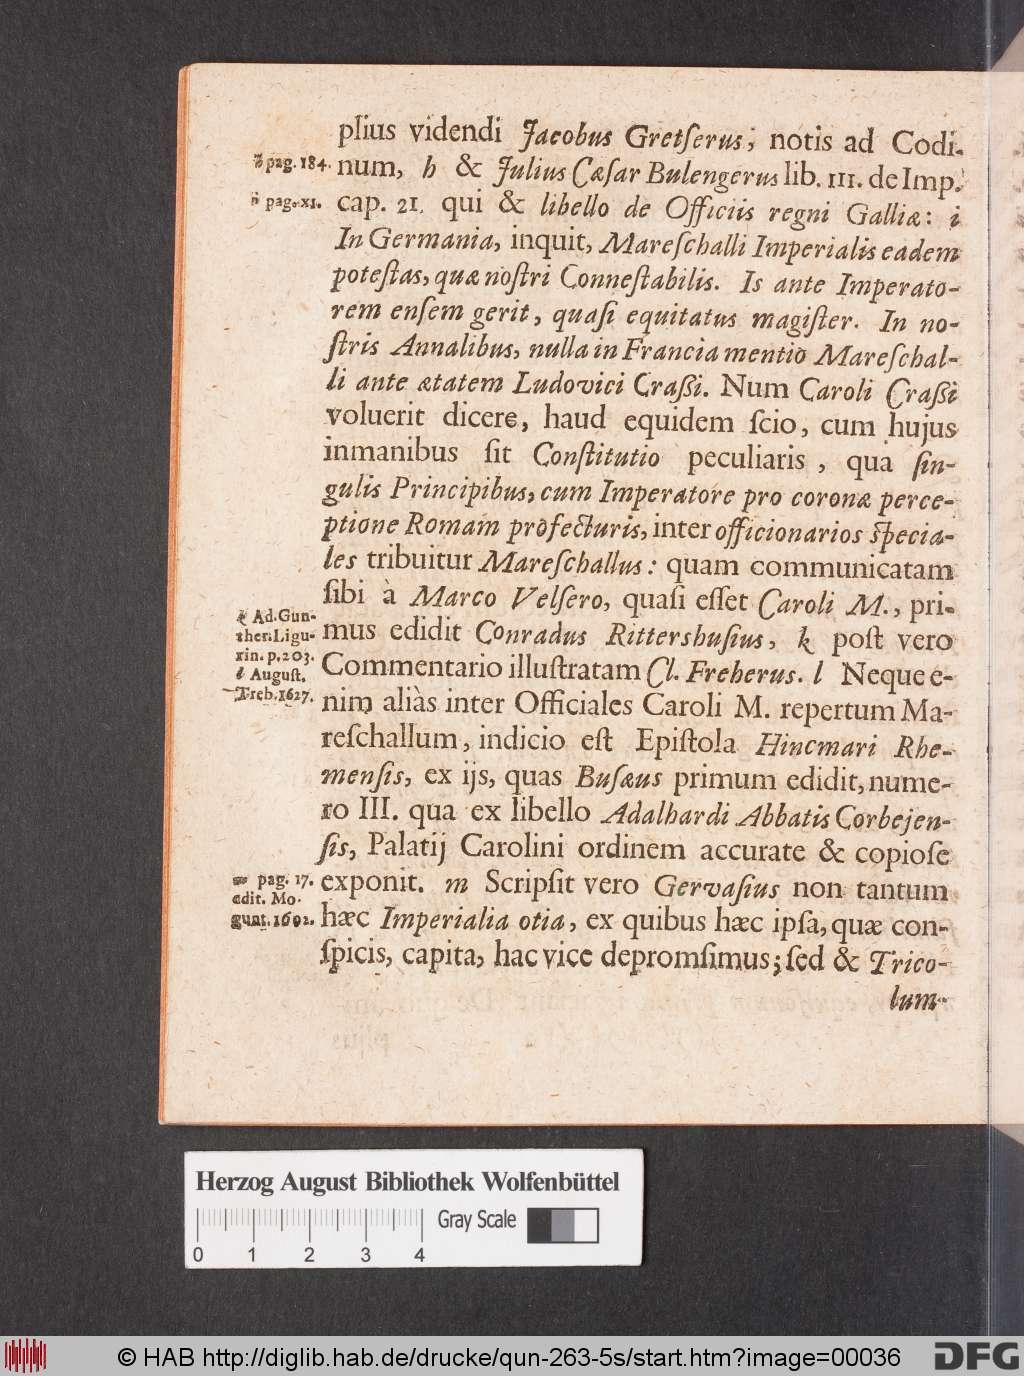 plius videndi Jacobus Gretſerus, notis ad Codi-
h pag. 184. num, h & Julius Cæſar Bulengerus lib. III. de Imp.
pag. XI. cap. 21. qui & libello de Officiis regni Galliæ: i
In Germania, inquit, Mareſchalli Imperialis eadem
poteſtas, quæ noſtri Conneſtabilis. Is ante Imperato-
rem enſem gerit, quaſi equitatus magiſter. In no-
ſtris Annalibus, nulla in Francia mentio Mareſchal-
li ante ætatem Ludovici Craßi. Num Caroli Craßi
voluerit dicere, haud equidem ſcio, cum hujus
inmanibus ſit Conſtitutio peculiaris, quâ ſin-
gulis Principibus, cum Imperatore pro coronæ perce-
ptione Romam profecturis, inter officionarios ſpecia-
les tribuitur Mareſchallus: quam communicatam
ſibi à Marco Velſero, quaſi eſſet Caroli M., pri-
k Ad. Gun-
ther. Ligu-
rin. p. 203.
l Auguſt.
Freh. 1627.
mus edidit Conradus Rittershuſius, k poſt vero
Commentario illuſtratam Cl. Freherus. l Neque e-
nim aliàs inter Officiales Caroli M. repertum Ma-
reſchallum, indicio eſt Epiſtola Hincmari Rhe-
menſis, ex ijs, quas Buſæus primum edidit, nume-
ro III. qua ex libello Adalhardi Abbatis Corbejen-
ſis, Palatij Carolini ordinem accurate & copioſe
m pag. 17.
edit. Mo-
gunt. 1602.
exponit. m Scripſit vero Gervaſius non tantum
hæc Imperialia otia, ex quibus hæc ipſa, quæ con-
ſpicis, capita, hac vice depromſimus; ſed & Trico-
lum-
Herzog August Bibliothek Wolfenbüttel
Gray Scale
0 1 2 3 4
© HAB http://diglib.hab.de/drucke/qun-263-5s/start.htm?image=00036
DFG